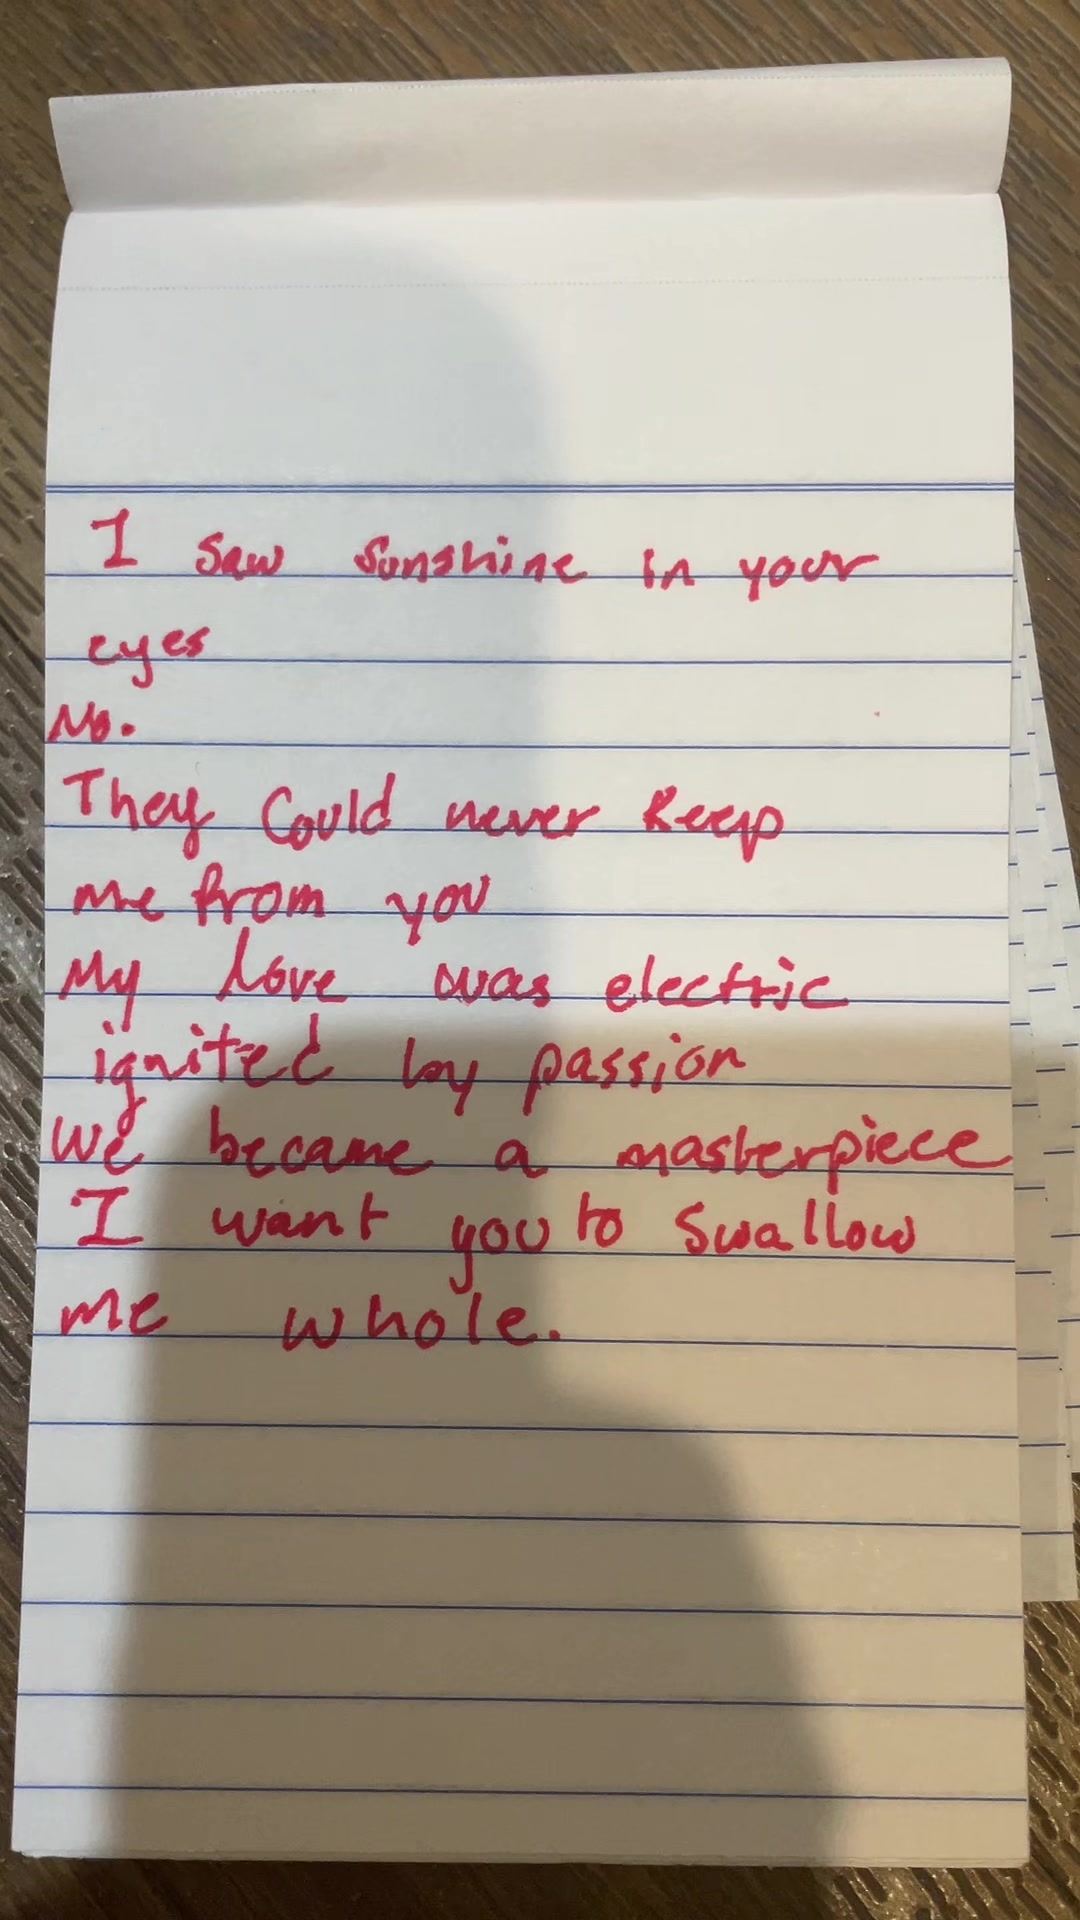 I saw sunshine in your
eyes
No.
They Could never keep
me from you
My love was electric
ignited by passion
We became a masterpiece
I want you to swallow
me whole.